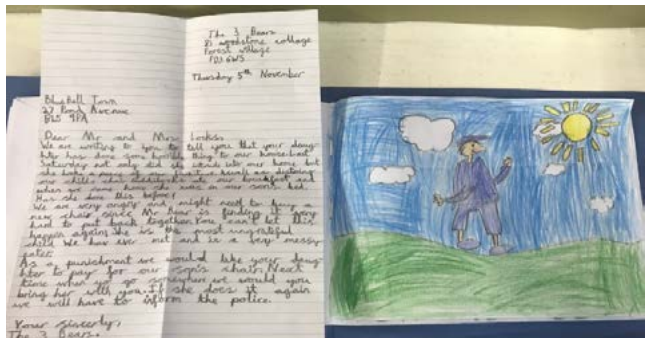 The 3 Bears
woodstone cottage
Forest village
Thursday 5th November
Bluebell Town
27 Pond Avenue
BL5 9PA
Dear Mr and Mrs
We are writing to you to tell you that your daug
hter has done some horrible thing to our house last
Saturday not only did she into our home but
she broke a piece of our
our chair she ate our breakfast and
when we came home she was in our sons bed.
Has she done this before?
We are very angry and might need to buy a
new chair since Mr bear is finding it very
hard to put back together. You can't let this
happen again. She is the most ungratful
child We have ever met and is a very messy
eater.
As a punishment we would like your daug
hter to pay for our son's chair. Next
time when you go somewhere we would you
bring her with you. If she does it again
we will have to inform the police.
Your sincerly,
The 3 Bears.